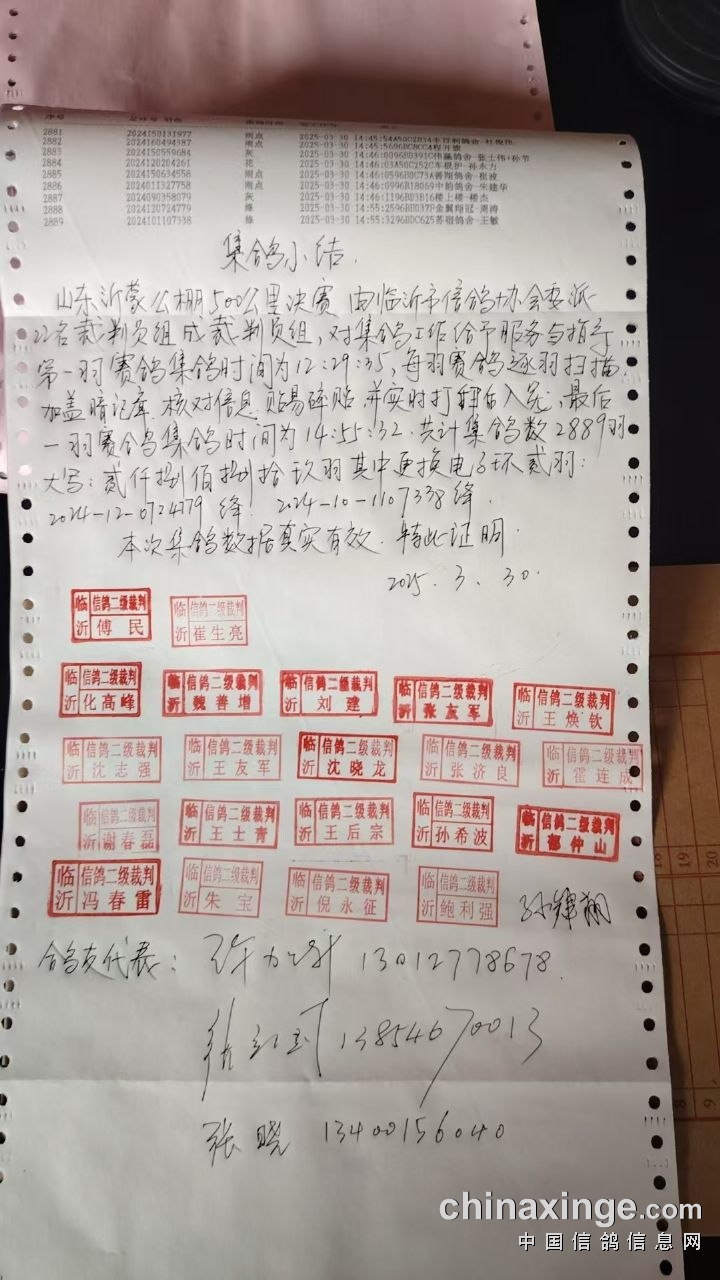 2881 2024150131977 雨点 2025-03-30 14:45:54
2882 2024160494387 雨点 2025-03-30 14:45:56
2883 2024150559684 灰 2025-03-30 14:46:00
2884 2024120204261 花 2025-03-30 14:46:01
2885 2024150634558 雨点 2025-03-30 14:46:05
2886 2024011327758 雨点 2025-03-30 14:46:09
2887 2024090358079 灰 2025-03-30 14:46:11
2888 2024120724779 绛 2025-03-30 14:55:25
2889 2024101107338 绛 2025-03-30 14:55:32
集鸽小结.
山东沂蒙公棚500公里决赛 由临沂市信鸽协会委派
22名裁判员组成裁判员组,对集鸽工作给予服务与指导
第一羽赛鸽集鸽时间为12:29:35,每羽赛鸽逐羽扫描,
加盖暗记库 核对信息 贴易碎贴 并实时打印 最后
一羽赛鸽集鸽时间为14:55:32.共计集鸽数2889羽
大写:贰仟捌佰捌拾玖羽 其中更换电子环贰羽:
2024-12-0724779 绛! 2024-10-1107338绛.
本次集鸽数据真实有效.特此证明.
2025.3.30.
临沂 信鸽二级裁判 傅民
临沂 信鸽二级裁判 崔生亮
临沂 信鸽二级裁判 化高峰
临沂 信鸽二级裁判 魏善增
临沂 信鸽二级裁判 刘建
临沂 信鸽二级裁判 张友军
临沂 信鸽二级裁判 王焕钦
临沂 信鸽二级裁判 沈志强
临沂 信鸽二级裁判 王友军
临沂 信鸽二级裁判 沈晓龙
临沂 信鸽二级裁判 张济良
临沂 信鸽二级裁判 霍连成
临沂 信鸽二级裁判 谢春磊
临沂 信鸽二级裁判 王士青
临沂 信鸽二级裁判 王后宗
临沂 信鸽二级裁判 孙希波
临沂 信鸽二级裁判 仲山
临沂 信鸽二级裁判 冯春雷
临沂 信鸽二级裁判 朱宝
临沂 信鸽二级裁判 倪永征
临沂 信鸽二级裁判 鲍利强
鸽友代表: 13012778678.
13854670013
张晓 13400156040
18 19 20
8 9
chinaxinge.com
中国信鸽信息网